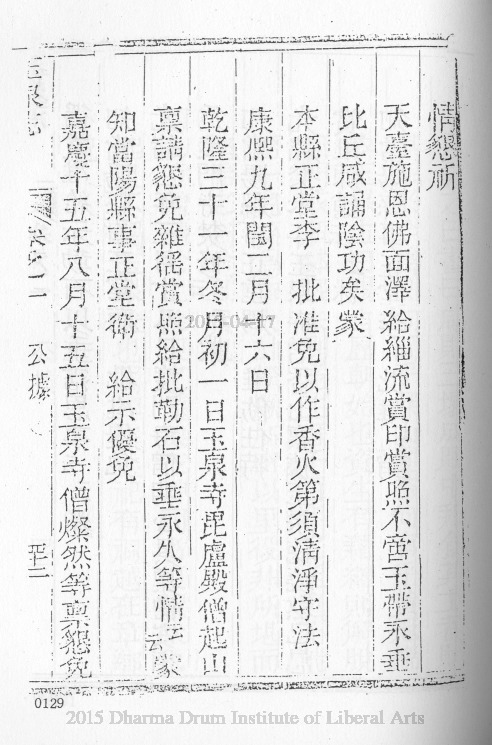 情懇祈
天臺施恩佛面澤給緇流賞印賞照不啻玉帶永垂
比丘咸誦陰功矣蒙
本縣正堂李 批准免以作香火第須清淨守法
康熙九年閏二月十六日
乾隆三十一年冬月初一日玉泉寺毘盧殿僧起山
稟請懇免雜徭賞照給批勒石以垂永久等情云云蒙
知當陽縣事正堂衛 給示優免
嘉慶十五年八月十五日玉泉寺僧燦然等稟懇免
玉泉志 卷之一 公據
0129
2015 Dharma Drum Institute of Liberal Arts